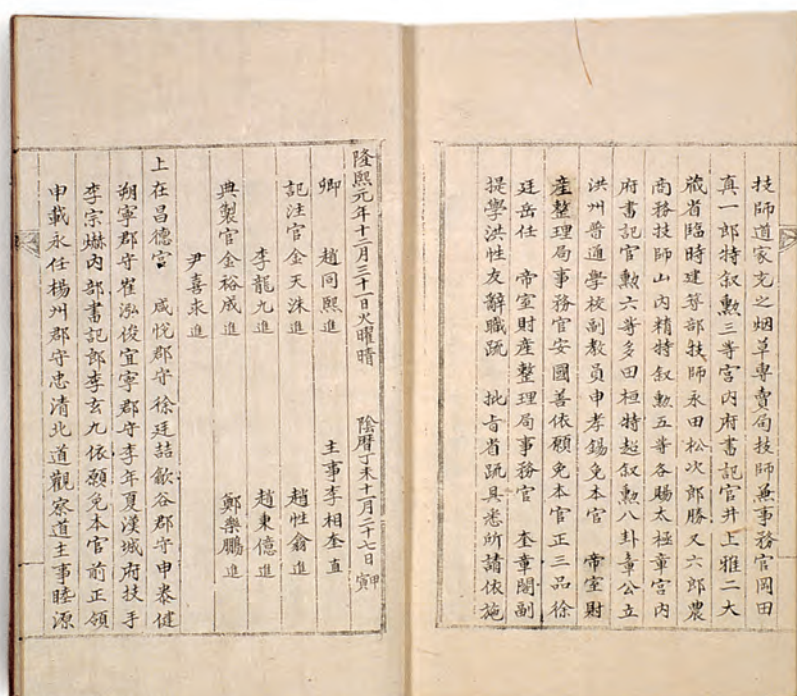 技師道家充之烟草專賣局技師兼事務官岡田
真一郎特叙勲三等宮內府書記官井上雅二大
藏省臨時建築部技師永田松次郎勝又六郎農
商務技師山內精特叙勲五等各賜太極章宮內
府書記官勲六等多田桓特超叙勲八卦章公立
洪州普通學校副敎員申孝錫免本官 帝室財
產整理局事務官安國善依願免本官正三品徐
廷岳任 帝室財產整理局事務官 奎章閣副
提學洪性友辭職疏 批旨省疏具悉所請依施
隆熙元年十二月三十一日火曜晴 陰曆丁未十一月二十七日甲寅
卿 趙同熙進 主事李相奎直
記注官金天洙進 趙性翕進
李龍九進 趙東億進
典製官金裕成進 鄭樂鵬進
尹喜求進
上在昌德宮 咸悅郡守徐廷喆歙谷郡守申泰健
朔寧郡守崔泓俊宜寧郡守李年夏漢城府技手
李宗爀內部書記郎李玄九依願免本官前正領
申載永任楊州郡守忠淸北道觀察道主事睦源